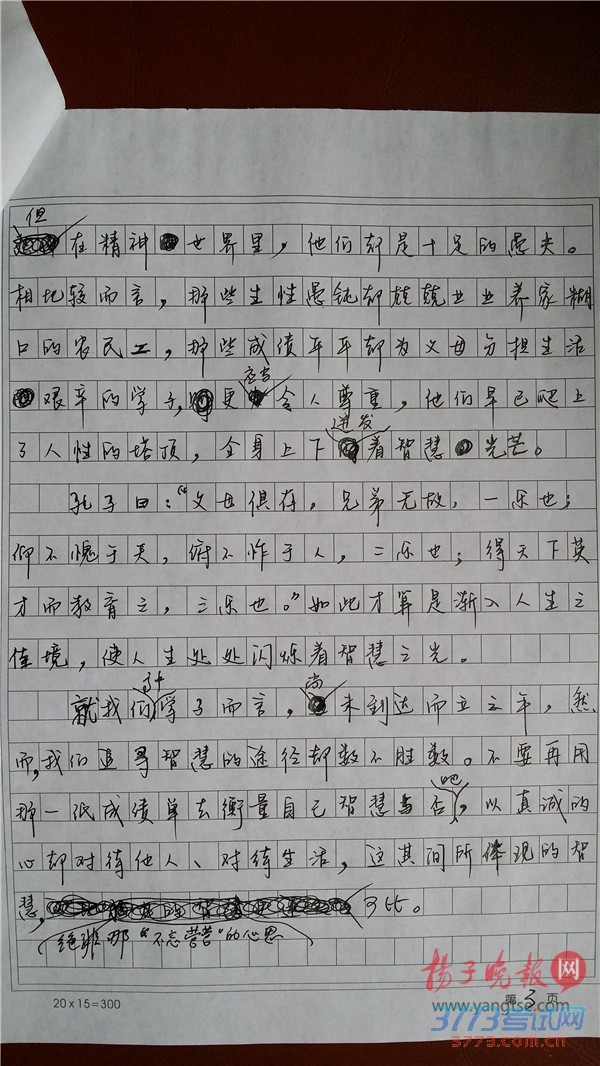 但在精神世界里，他们却是十足的愚夫。
相比较而言，那些生性愚钝却兢兢业业养家糊
口的农民工，那些成绩平平却为父母分担生活
艰辛的学子，更应当令人尊重，他们早已爬上
了人性的塔顶，全身上下迸发着智慧光芒。
孔子曰：“父母俱存，兄弟无故，一乐也；
仰不愧于天，俯不怍于人，二乐也；得天下英
才而教育之，三乐也。”如此才算是渐入人生之
佳境，使人生处处闪烁着智慧之光。
就我们学子而言，尚未到达而立之年，然
而，我们追寻智慧的途径却数不胜数。不要再用
那一纸成绩单去衡量自己智慧与否吧，以真诚的
心却对待他人、对待生活，这其间所体现的智
慧，绝非那“不忘营营”的心思可比。
20×15=300
第3页
扬子晚报网
www.yangtse.com
3773考试网
3773.com.cn